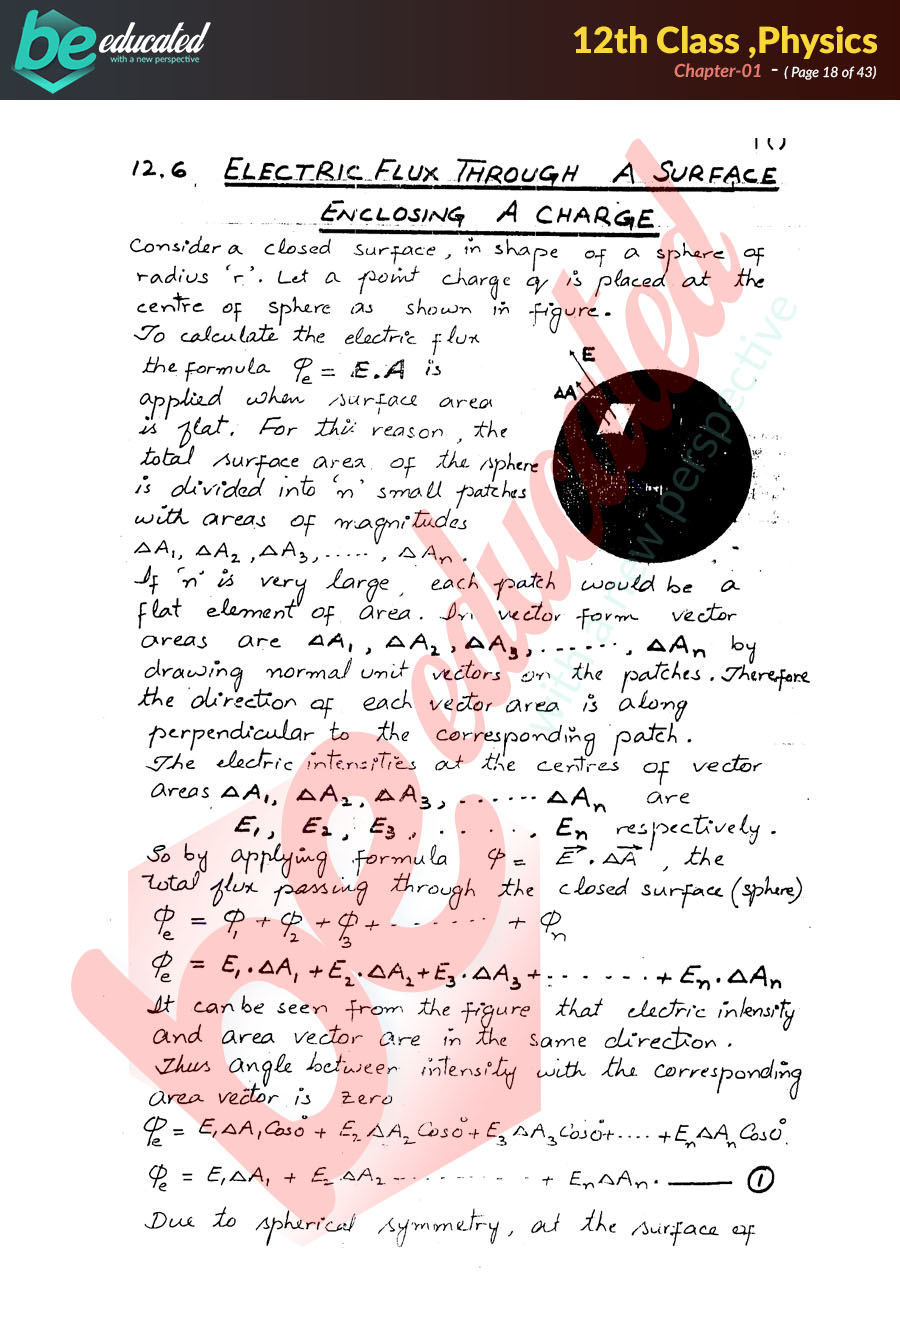 be educated
with a new perspective
12th Class ,Physics
Chapter-01 - ( Page 18 of 43)
12.6 ELECTRIC FLUX THROUGH A SURFACE
ENCLOSING A CHARGE
Consider a closed surface, in shape of a sphere of
radius 'r'. Let a point charge q is placed at the
centre of sphere as shown in figure.
To calculate the electric flux
the formula Φe = E.A is
applied when surface area
is flat. For this reason, the
total surface area of the sphere
is divided into 'n' small patches
with areas of magnitudes
ΔA1, ΔA2, ΔA3, ....., ΔAn.
E
ΔA
If 'n' is very large, each patch would be a
flat element of area. In vector form vector
areas are ΔA1, ΔA2, ΔA3, ......, ΔAn by
drawing normal unit vectors on the patches. Therefore
the direction of each vector area is along
perpendicular to the corresponding patch.
The electric intensities at the centres of vector
areas ΔA1, ΔA2, ΔA3, ....... ΔAn are
E1, E2, E3, ....., En respectively.
So by applying formula Φ = E⃗ . ΔA⃗, the
total flux passing through the closed surface (sphere)
Φe = Φ1 + Φ2 + Φ3 + ........ + Φn
Φe = E1.ΔA1 + E2.ΔA2 + E3.ΔA3 + ....... + En.ΔAn
It can be seen from the figure that electric intensity
and area vector are in the same direction.
Thus angle between intensity with the corresponding
area vector is zero
Φe = E1ΔA1Cos0° + E2ΔA2Cos0° + E3ΔA3Cos0° + .... + EnΔAnCos0°.
Φe = E1ΔA1 + E2ΔA2 .......... + EnΔAn. —— ①
Due to spherical symmetry, at the surface of
be educated
with a new perspective